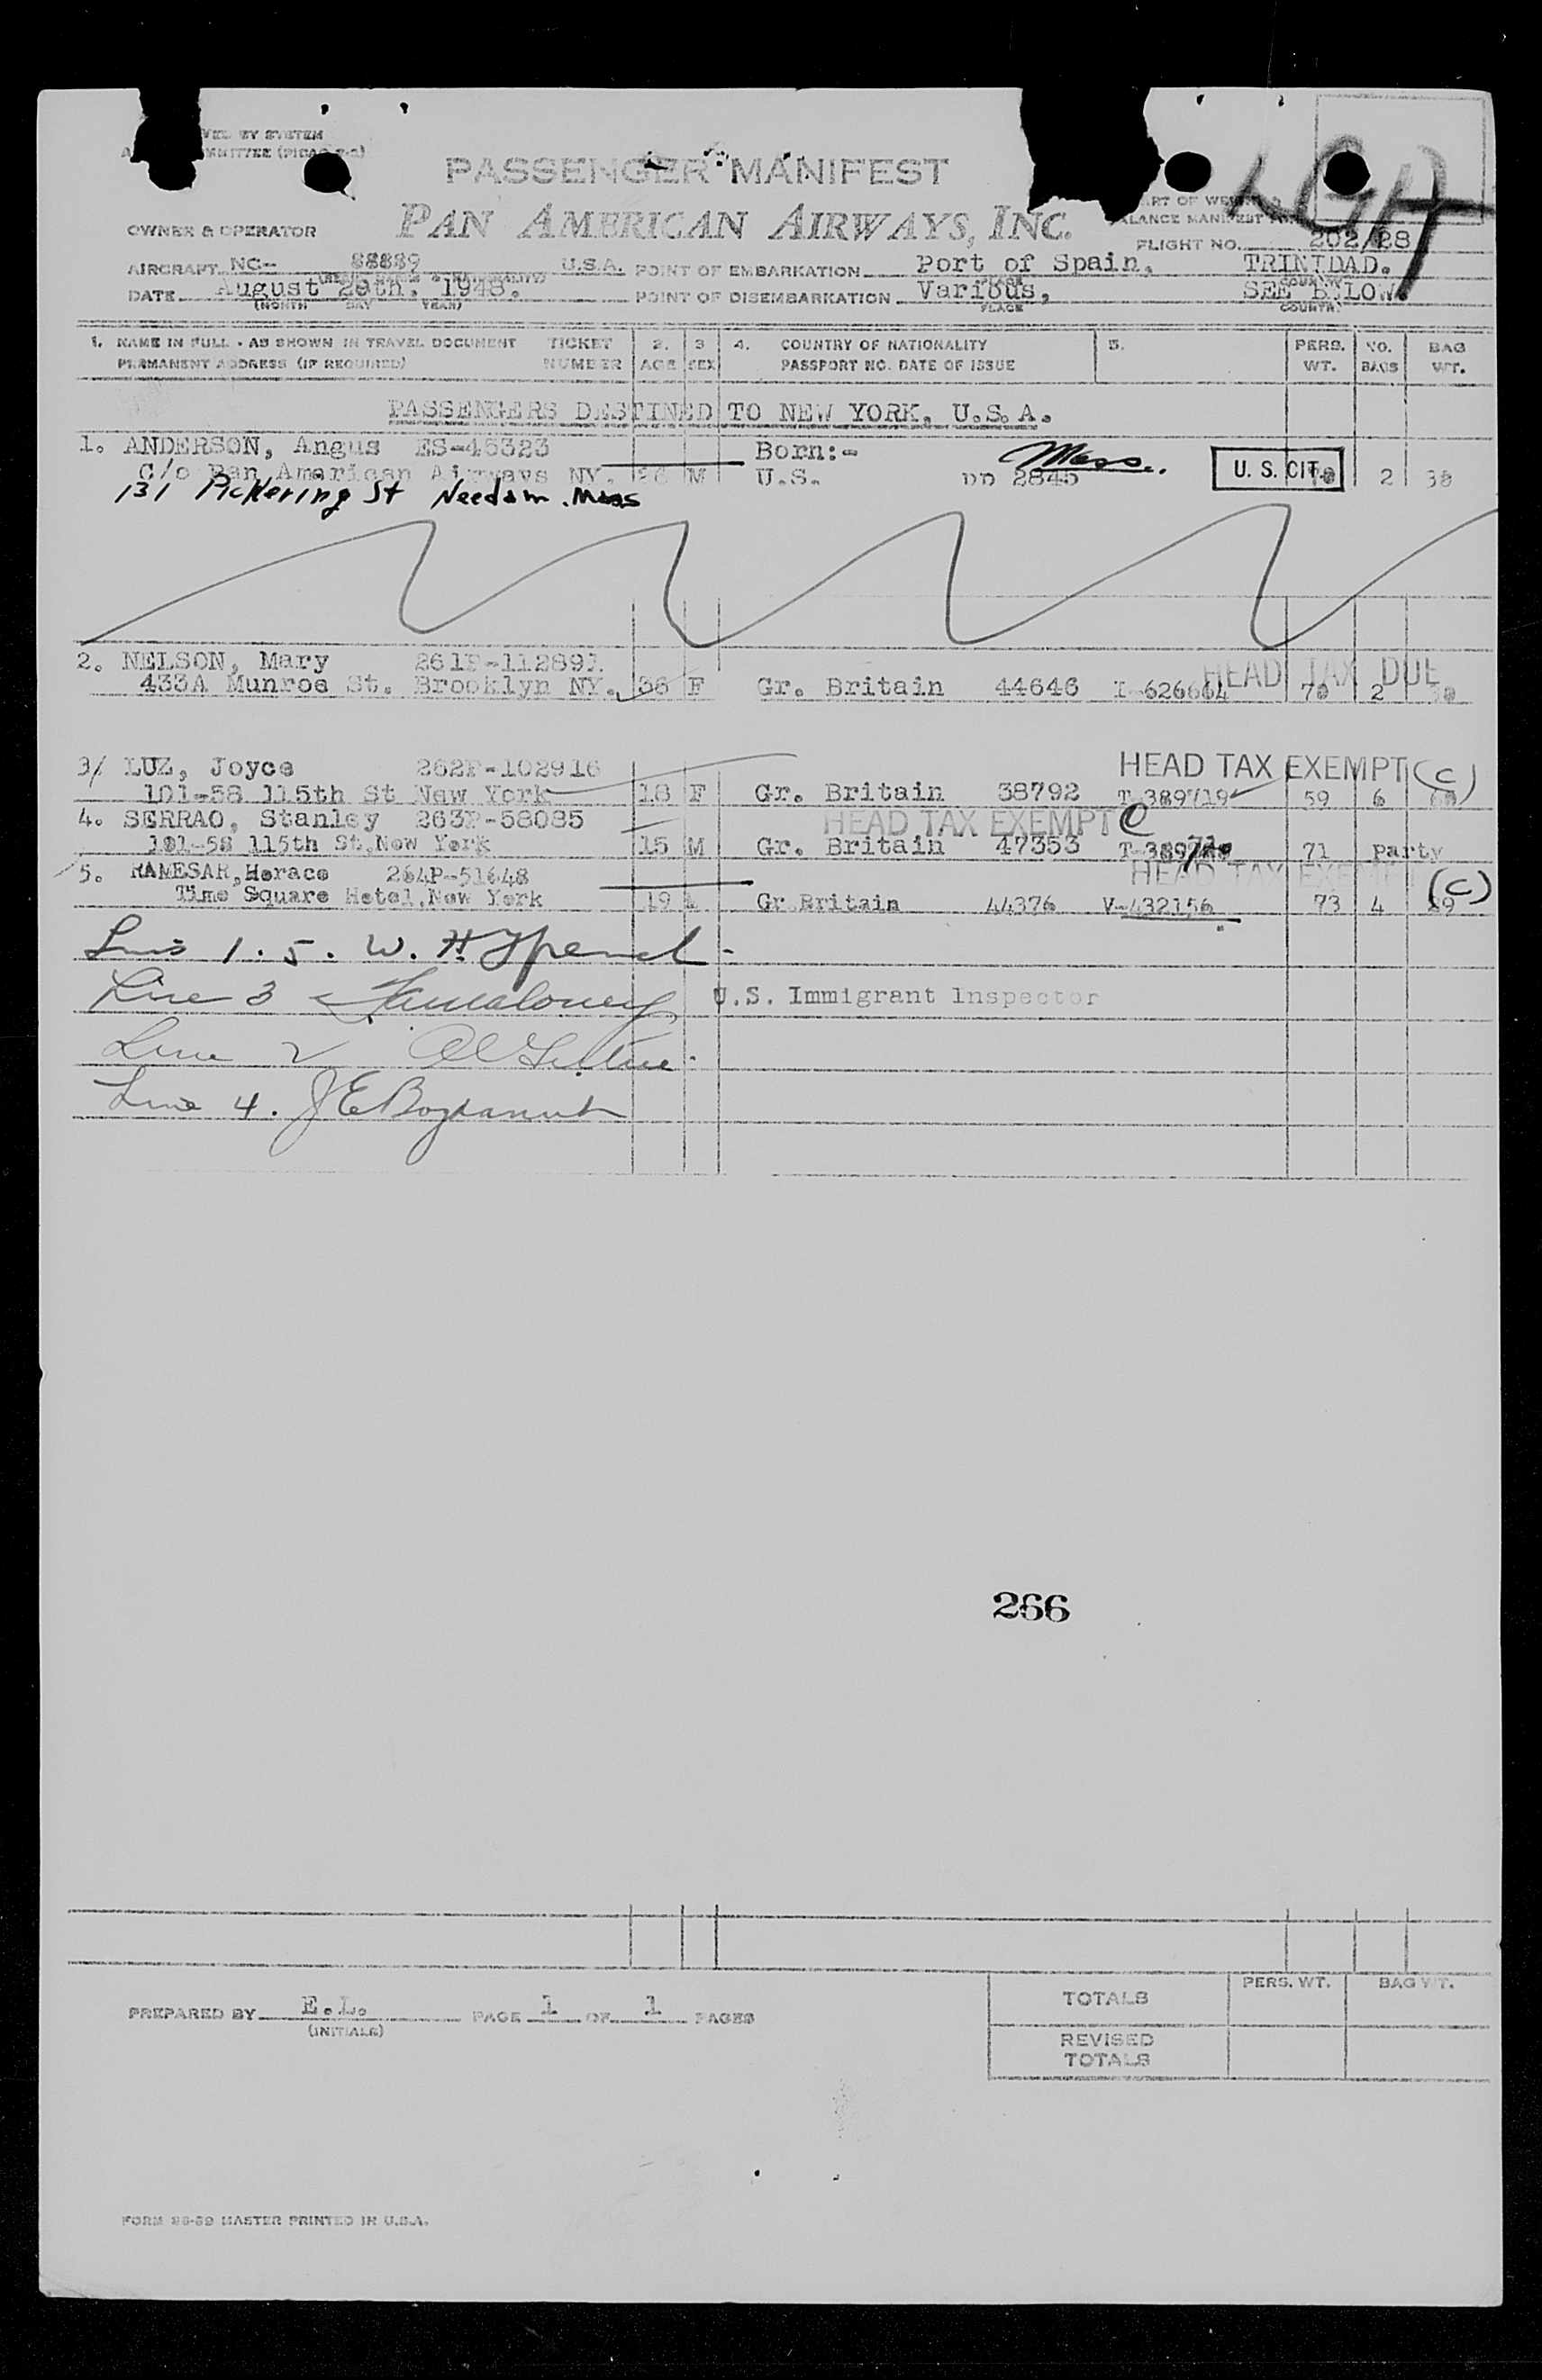 BY SYSTEM
PASSENGER MANIFEST
OWNER & OPERATOR PAN AMERICAN AIRWAYS, INC.
FLIGHT NO. 202/28
AIRCRAFT NC- 88889 U.S.A. POINT OF EMBARKATION Port of Spain, TRINIDAD.
DATE August 28th, 1948. POINT OF DISEMBARKATION Various, SEE BELOW
(MONTH DAY YEAR) PLACE COUNTRY
1. NAME IN FULL - AS SHOWN IN TRAVEL DOCUMENT TICKET 2. 3 4. COUNTRY OF NATIONALITY 5. PERS. NO. BAG
PERMANENT ADDRESS (IF REQUIRED) NUMBER AGE SEX PASSPORT NO. DATE OF ISSUE WT. BAGS WT.
PASSENGERS DESTINED TO NEW YORK, U.S.A.
1. ANDERSON, Angus ES-45323 Born:- Mass.
C/o Pan American Airways NY. M U.S. DD 2845 U. S. CIT. 2
131 Pickering St Needam. Mass
2. NELSON, Mary 261P-112891 HEAD TAX DUE
433A Munroe St. Brooklyn NY. 36 F Gr. Britain 44646 I-626664 70 2
3/ LUZ, Joyce 262P-102916 HEAD TAX EXEMPT (C)
101-58 115th St New York 18 F Gr. Britain 38792 T-389719 59 6
4. SERRAO, Stanley 263P-58085 HEAD TAX EXEMPT C
101-58 115th St,New York 15 M Gr. Britain 47353 71 party
5. RAMESAR,Horace 264P-51648 HEAD TAX EXEMPT (C)
Time Square Hotel,New York 19 Gr.Britain 44376 V-432156 73 4
1. 5. W. H.
Line 3
U.S. Immigrant Inspector
Line 2
Line 4. J E
266
PREPARED BY E.L. PAGE 1 OF 1 PAGES
(INITIALS)
PERS. WT. BAG WT.
TOTALS
REVISED
TOTALS
FORM MASTER PRINTED IN U.S.A.